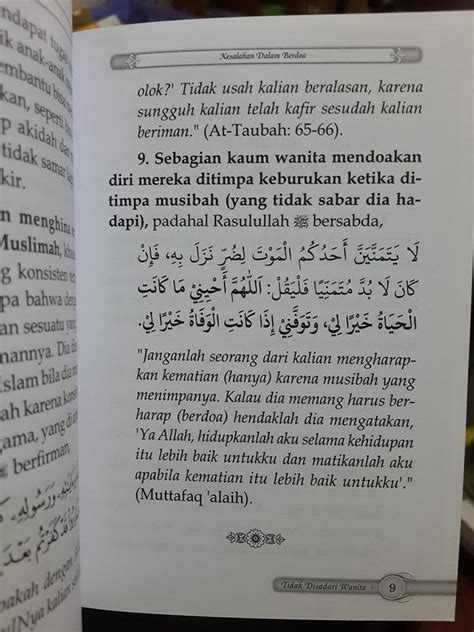 ndapat tugas
ik anak-anak
embantu bisa
kan, seperti
p akidah dan
tidak samar lag
kir.
an menghina
Muslimah, khu
ng konsisten ter
pa bahwa deng
an sesuatu yang
mannya. Dia d
Islam bila dia me
ah karena konsi
gama, yang di an
ﷺ berfirman,
pakah dengan
ulNya kalian se
Kesalahan Dalam Berdoa
olok?' Tidak usah kalian beralasan, karena
sungguh kalian telah kafir sesudah kalian
beriman." (At-Taubah: 65-66).
9. Sebagian kaum wanita mendoakan
diri mereka ditimpa keburukan ketika di-
timpa musibah (yang tidak sabar dia ha-
dapi), padahal Rasulullah ﷺ bersabda,
لَا يَتَمَنَّيَنَّ أَحَدُكُمُ الْمَوْتَ لِضُرٍّ نَزَلَ بِهِ، فَإِنْ
كَانَ لَا بُدَّ مُتَمَنِّيًا فَلْيَقُلْ: اَللّٰهُمَّ أَحْيِنِيْ مَا كَانَتِ
الْحَيَاةُ خَيْرًا لِيْ، وَتَوَفَّنِيْ إِذَا كَانَتِ الْوَفَاةُ خَيْرًا لِيْ.
"Janganlah seorang dari kalian mengharap-
kan kematian (hanya) karena musibah yang
menimpanya. Kalau dia memang harus ber-
harap (berdoa) hendaklah dia mengatakan,
'Ya Allah, hidupkanlah aku selama kehidupan
itu lebih baik untukku dan matikanlah aku
apabila kematian itu lebih baik untukku'."
(Muttafaq 'alaih).
Tidak Disadari Wanita
9